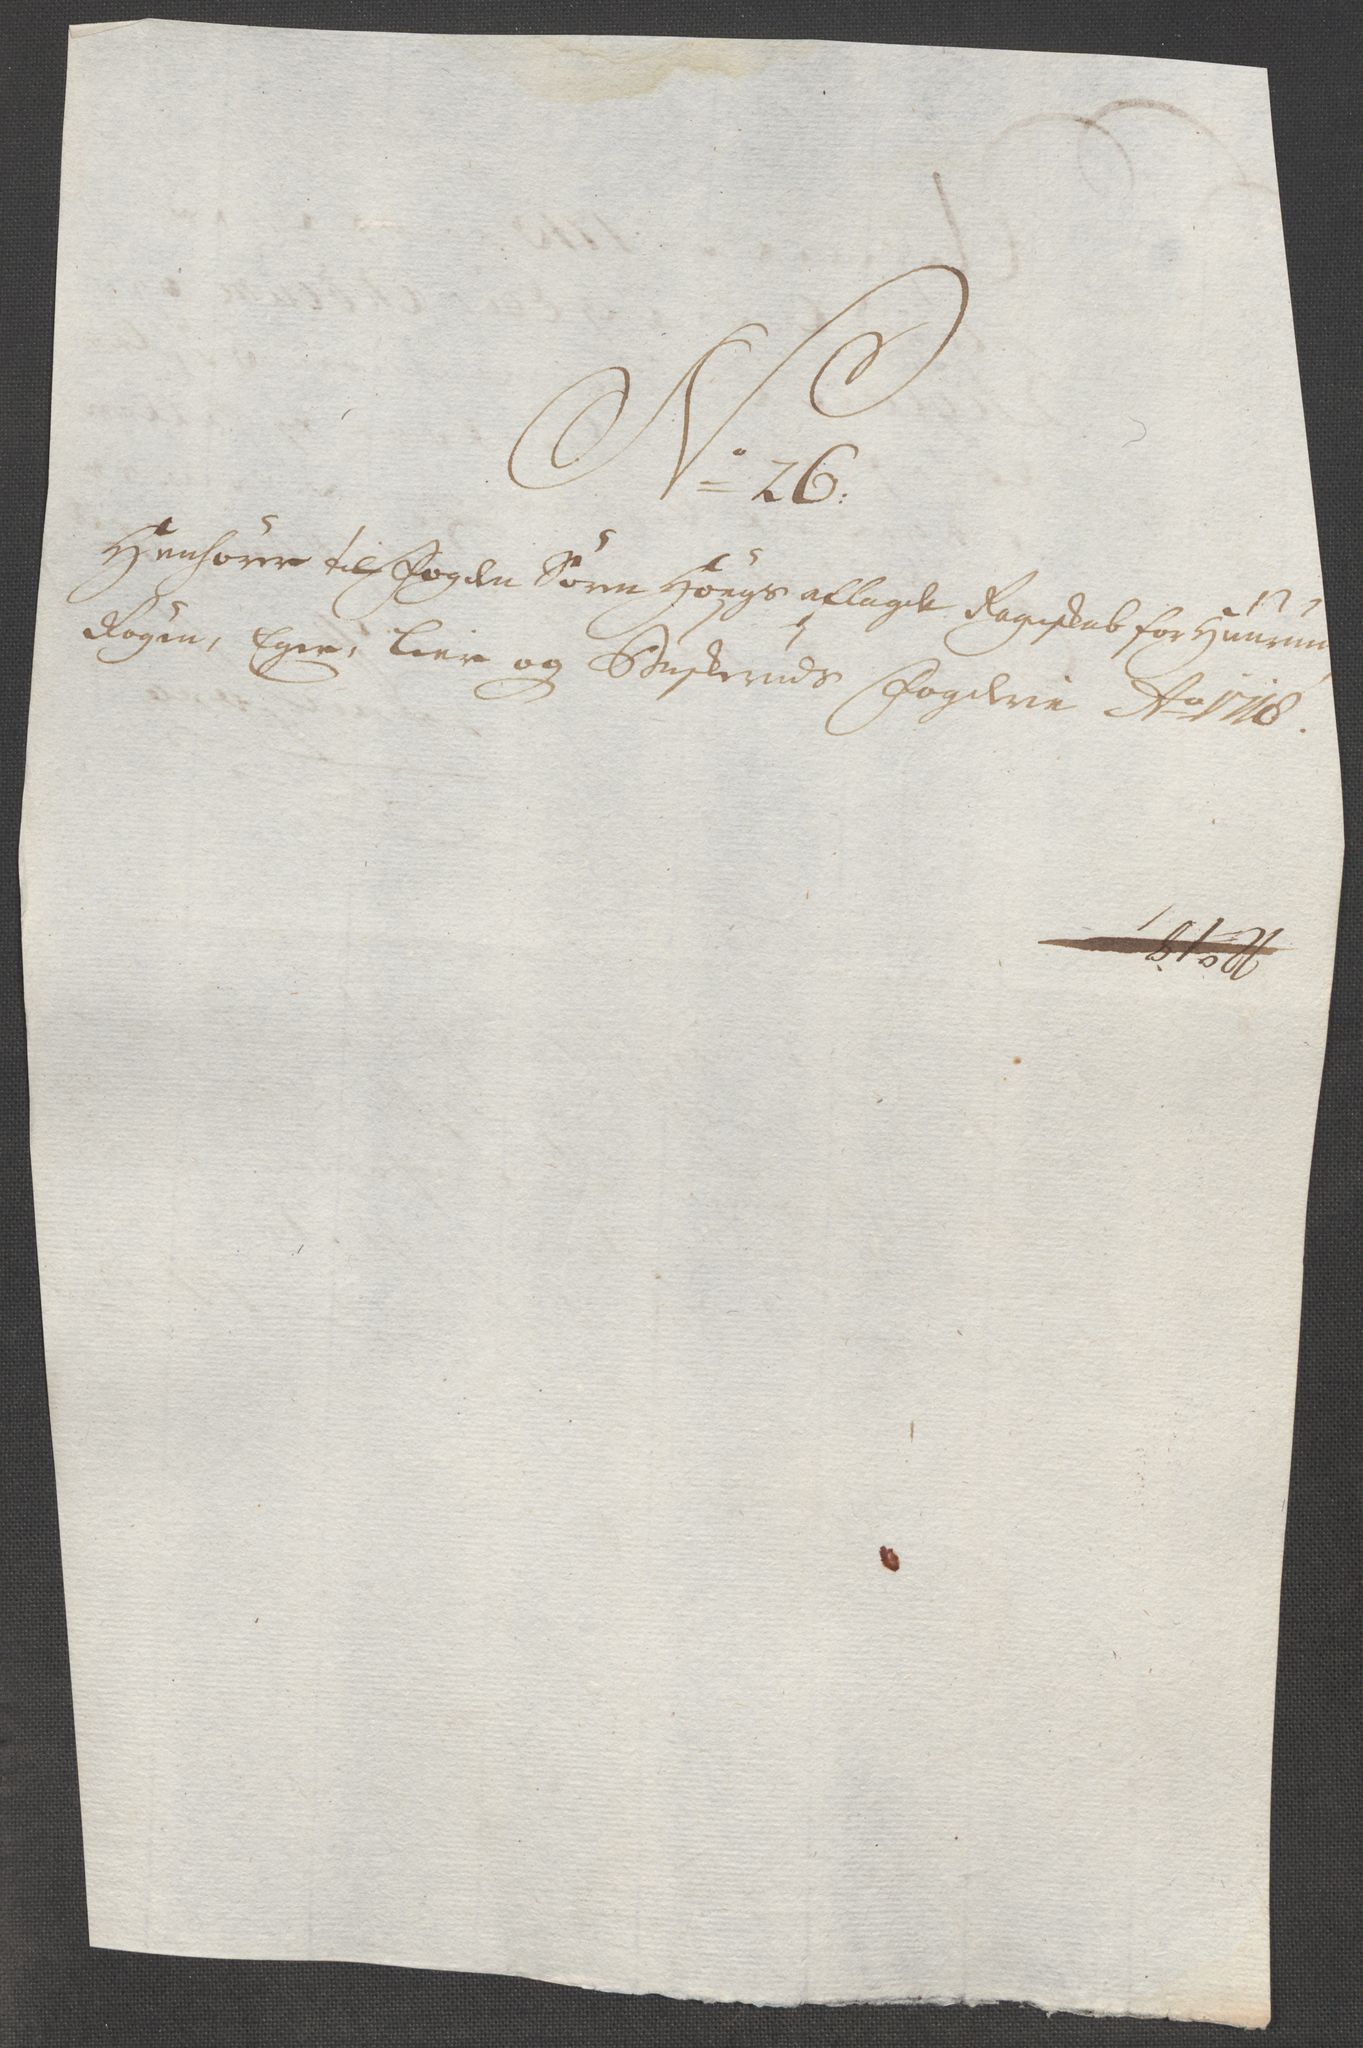 No 26:
Henhörer til Fogden Sören Höegs aflagde Regnskab for Hurum,
Rögen, Eger, Lier og Buskeruds Fogderie Ao 1718.
No 18